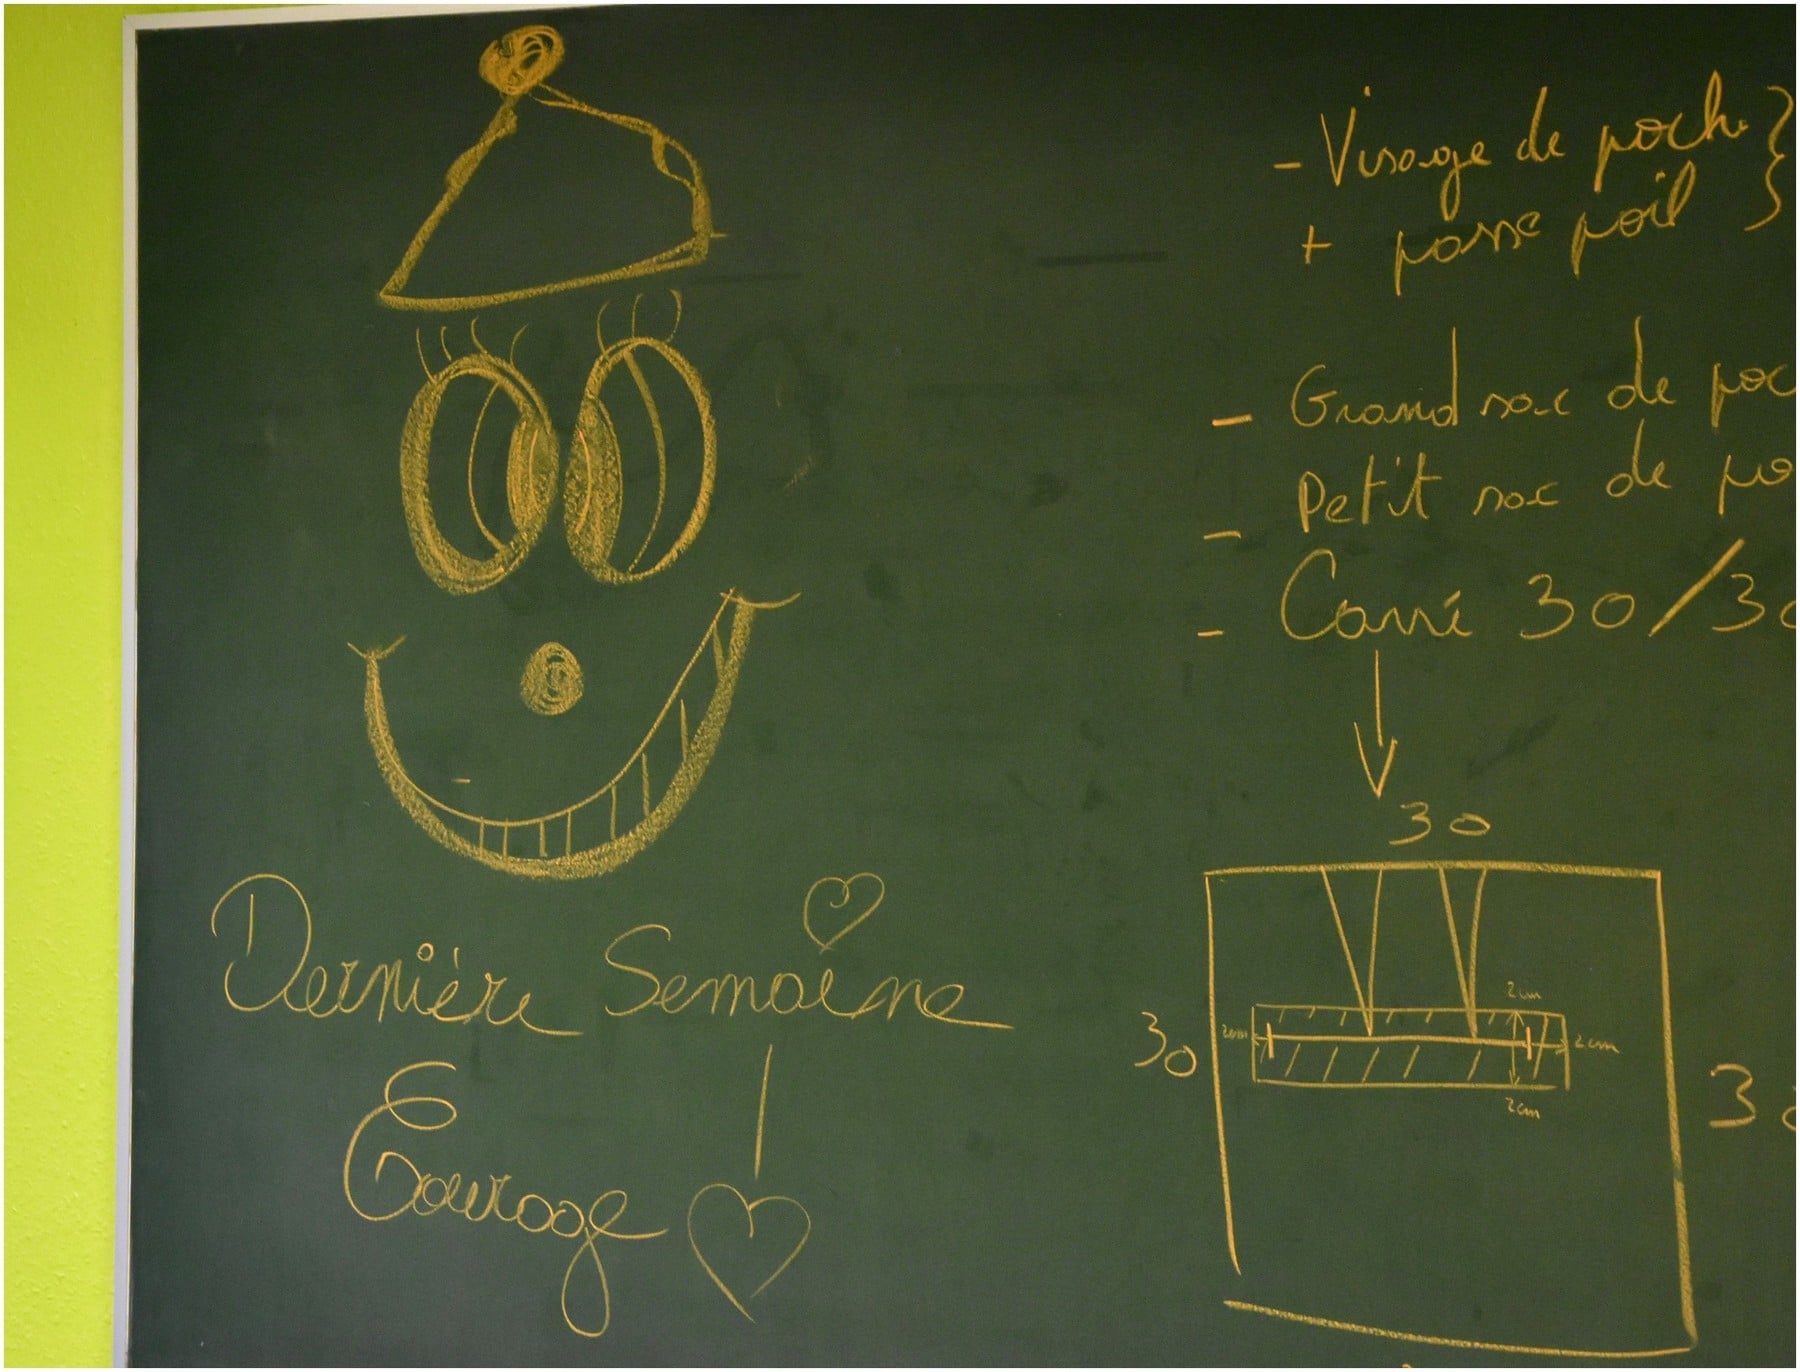 - Visage de poche }
+ passe poil }
- Grand sac de poc
- Petit sac de po
- Carré 30/30
30
2cm
30 2cm 2cm
2cm
30
Dernière Semaine
Courage